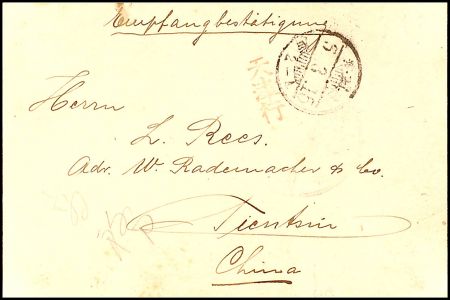 Empfangbestätigung
Herrn
L. Rees.
Adr. W. Rademacher & Co.
Tientsin
China